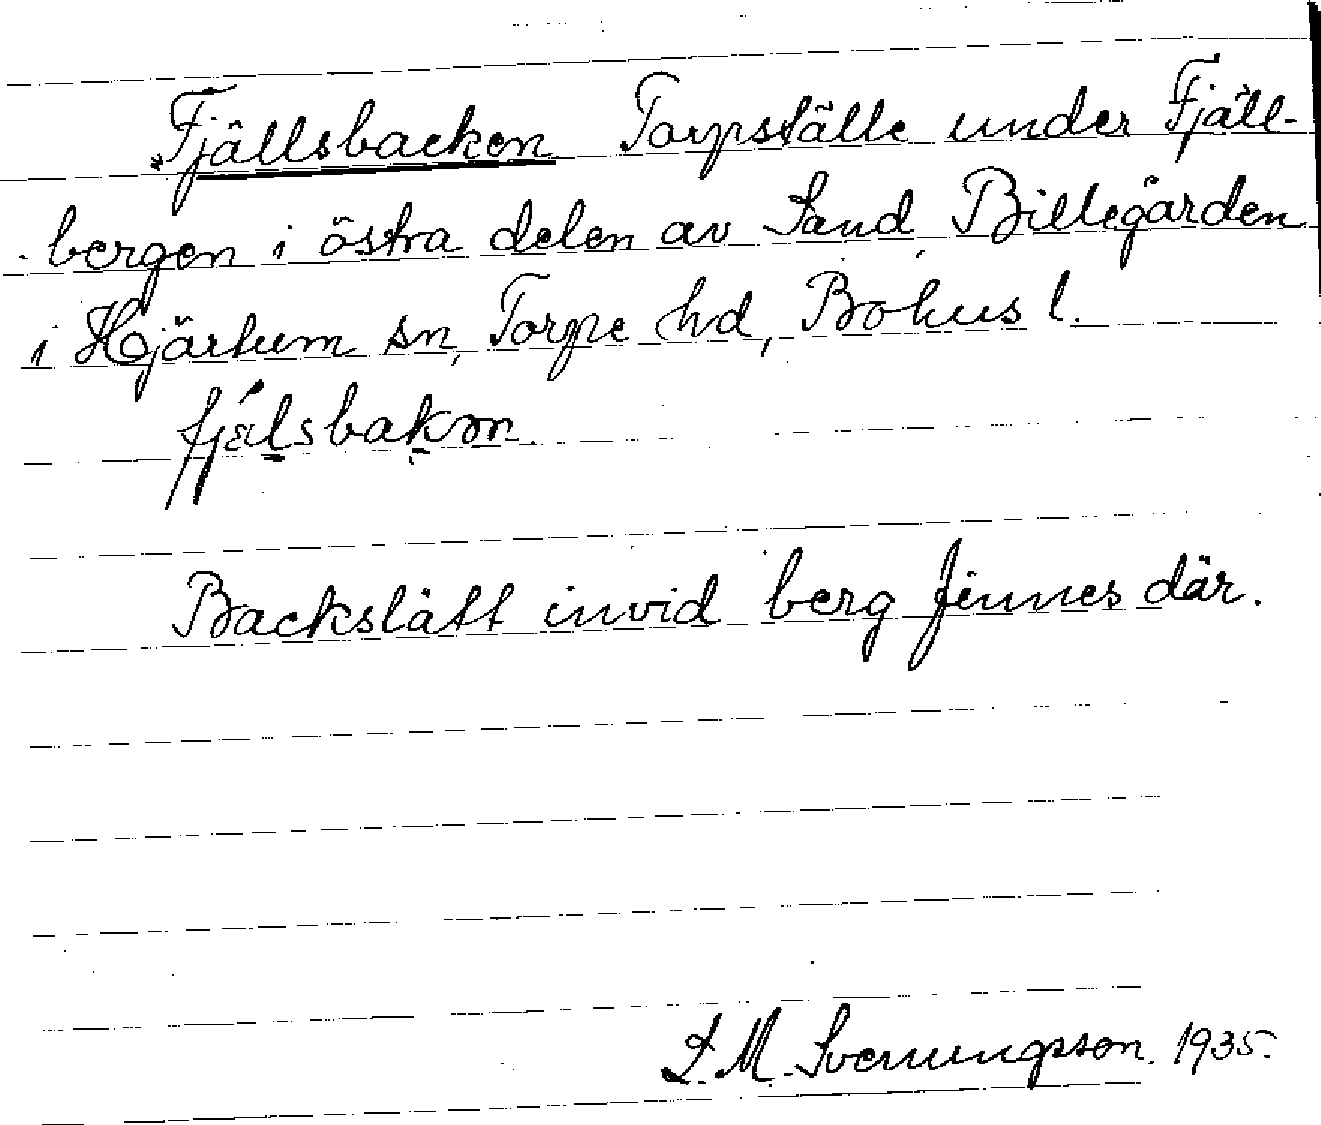 Fjällsbacken Torpställe under Fjäll-
bergen i östra delen av Sand Billegården
i Hjärtum sn, Torpe hd, Bohus l.
fjälsbakən.
Backslätt invid berg finnes där.
L. M. Svenungsson. 1935.